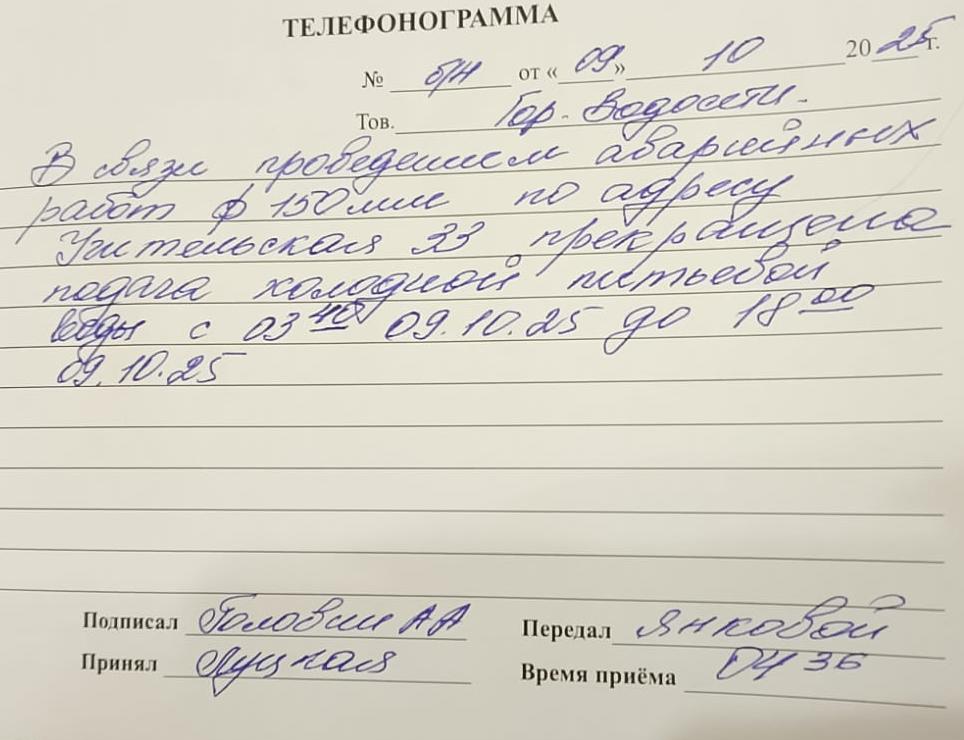 ТЕЛЕФОНОГРАММА
№ б/н от «09» 10 2025 г.
Тов. Гор. Водосети.
В связи проведением аварийных
работ ф 150мм по адресу
Учительская 33 прекращена
подача холодной питьевой
воды с 03 40 09.10.25 до 18 00
09.10.25
Подписал Головин А А Передал Янковой
Принял Луцкая Время приёма 04 36